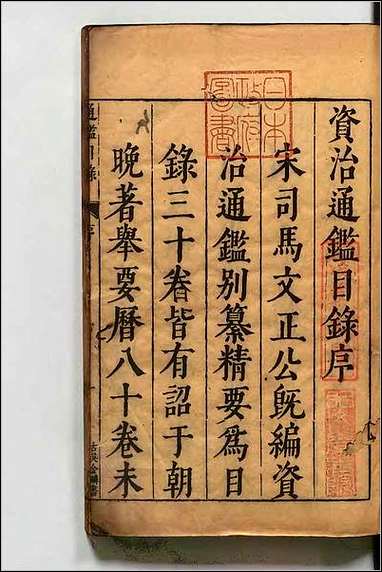 資治通鑑目錄序
宋司馬文正公旣編資
治通鑑別纂精要爲目
錄三十卷皆有詔于朝
晚著舉要曆八十卷未
通鑑目錄
序
日本
政府
圖書